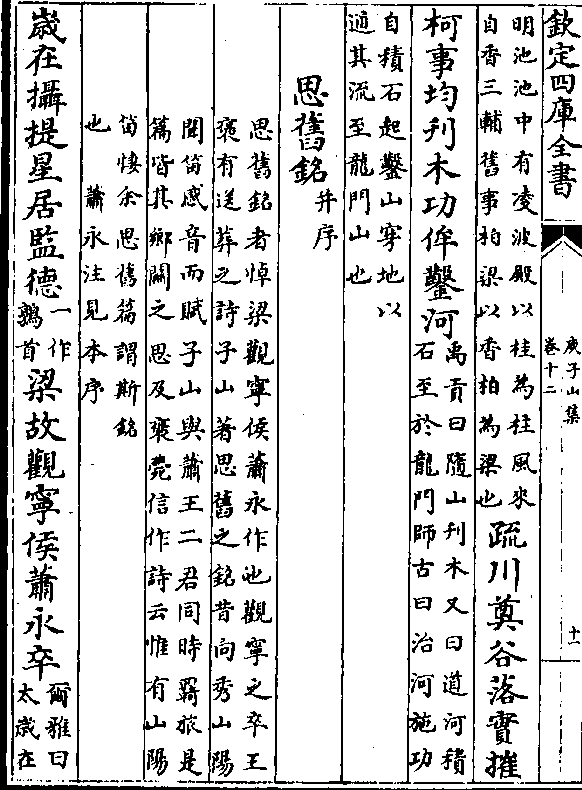 欽定四庫全書
庾子山集
卷十二
十一
明池池中有凌波殿以桂為柱風來
自香三輔舊事柏梁以香柏為梁也
疏川奠谷落實摧
柯事均刋木功侔鑿河
禹貢曰隨山刋木又曰道河積
石至於龍門師古曰治河施功
自積石起鑿山穿地以
通其流至龍門山也
思舊銘
并序
思舊銘者悼梁觀寧侯蕭永作也觀寧之卒王
襃有送葬之詩子山著思舊之銘昔向秀山陽
聞笛感音而賦子山與蕭王二君同時羇旅是
篇皆其鄉關之思及襃薨信作詩云惟有山陽
笛悽余思舊篇謂斯銘
也 蕭永注見本序
歳在攝提星居監德
一作
鶉首
梁故觀寧侯蕭永卒
爾雅曰
太歲在